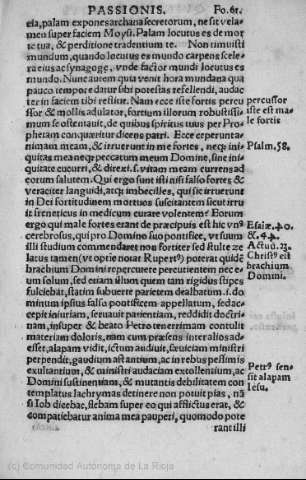 PASSIONIS. Fo. 61.
cia, palam exponens archana secretorum, ne sit vela-
men super faciem Moysi. Palam locutus es de mor
te tua, & perditione tradentium te. Non timuisti
mundum, quando locutus es mundo carpens scele-
ra eius ac synagogę, vnde facta: mundo locutus es
mundo. Nunc autem quia venit hora mundana qua
pauco tempore datur sibi potestas resellendi, audac
ter in faciem tibi resistitur. Nam ecce iste fortis percus
sor & mollis adulator, fortium illorum robustissi-
mum se ostentauit, de quibus spiritus tuus per Pro-
phetam conquæritur dicens patri. Ecce ceperunt a-
nimam meam, & irruerunt in me fortes, neq; ini-
quitas mea neq; peccatum meum Domine, sine ini-
quitate cucurri, & direxi. s. vitam meam currens ad
eorum salutem. Qui ergo sunt isti nisi falso fortes &
veraciter languidi, atq; imbecilles, qui sic irruerunt
in Dei fortitudinem mortuos suscitantem sicut irru
it freneticus in medicum curare volentem? Eorum
ergo qui male fortes erant de præcipuis est hic vnus
cerebrosus, qui pro Domino suo pontifice, vt suum
illi studium commendaret non fortiter sed stulte ze
latus tamen (vt optie notat Rupert9) poterat quidē
brachium Domini repercutere percutientem nec e-
um solum, sed etiam illum quem tam rigidus stipes
fulciebat, statim subuerte parietem dealbatum. i. do
minum ipsius falsa pontificem appellatum, sed ac-
cepit iniuriam, seruauit patientiam, reddidit doctri-
nam, insuper & beato Petro tenerrimam contulit
materiam doloris, nam cum præsens inter alios ad-
esset, alapam vidit, ictum audiuit, sæuiciam ministri
perpendit, gaudium astantium, ac in rebus pessimis
exultantium, & ministri audaciam extollentium, ac
Domini sustinentiam, & mutantis debilitatem con
templatus lachrymas detinere non potuit pias, nā
si Iob dicebat, flebam super eo qui afflictus erat, &
compatiebatur anima mea pauperi, quomodo pote
rant illi
percussor
iste est ma-
le fortis
Psalm. 58.
Esaiæ. 40.
& .49.
Actuū. 23.
Christ9 est
brachium
Domini.
Petr9 sen-
sit alapam
Iesu.
(c) Comunidad Autónoma de La Rioja